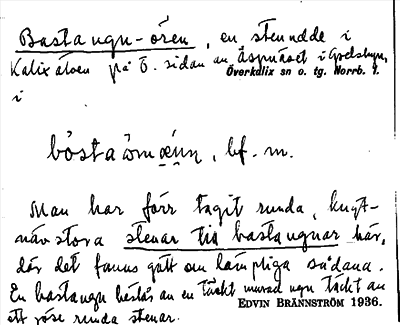 Bastaugn-ören, en stenudde i
Kalixälven på Ö. sidan av Åspnäset i Grelsbyn,
Överkalix sn o. tg. Norrb. l.
i
bf. m.
Man har förr tagit runda, knyt-
nävstora stenar till bastaugnar här,
där det fanns gott om lämpliga sådana.
En bastaugn består av en täckt murad ugn täckt av
ett röse runda stenar.
EDVIN BRÄNNSTRÖM 1936.